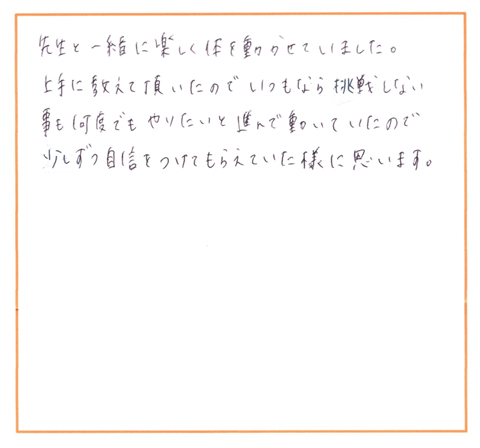 先生と一緒に楽しく体を動かせていました。
上手に教えて頂いたのでいつもなら挑戦しない
事も何度でもやりたいと進んで動いていたので
少しずつ自信をつけてもらえていた様に思います。